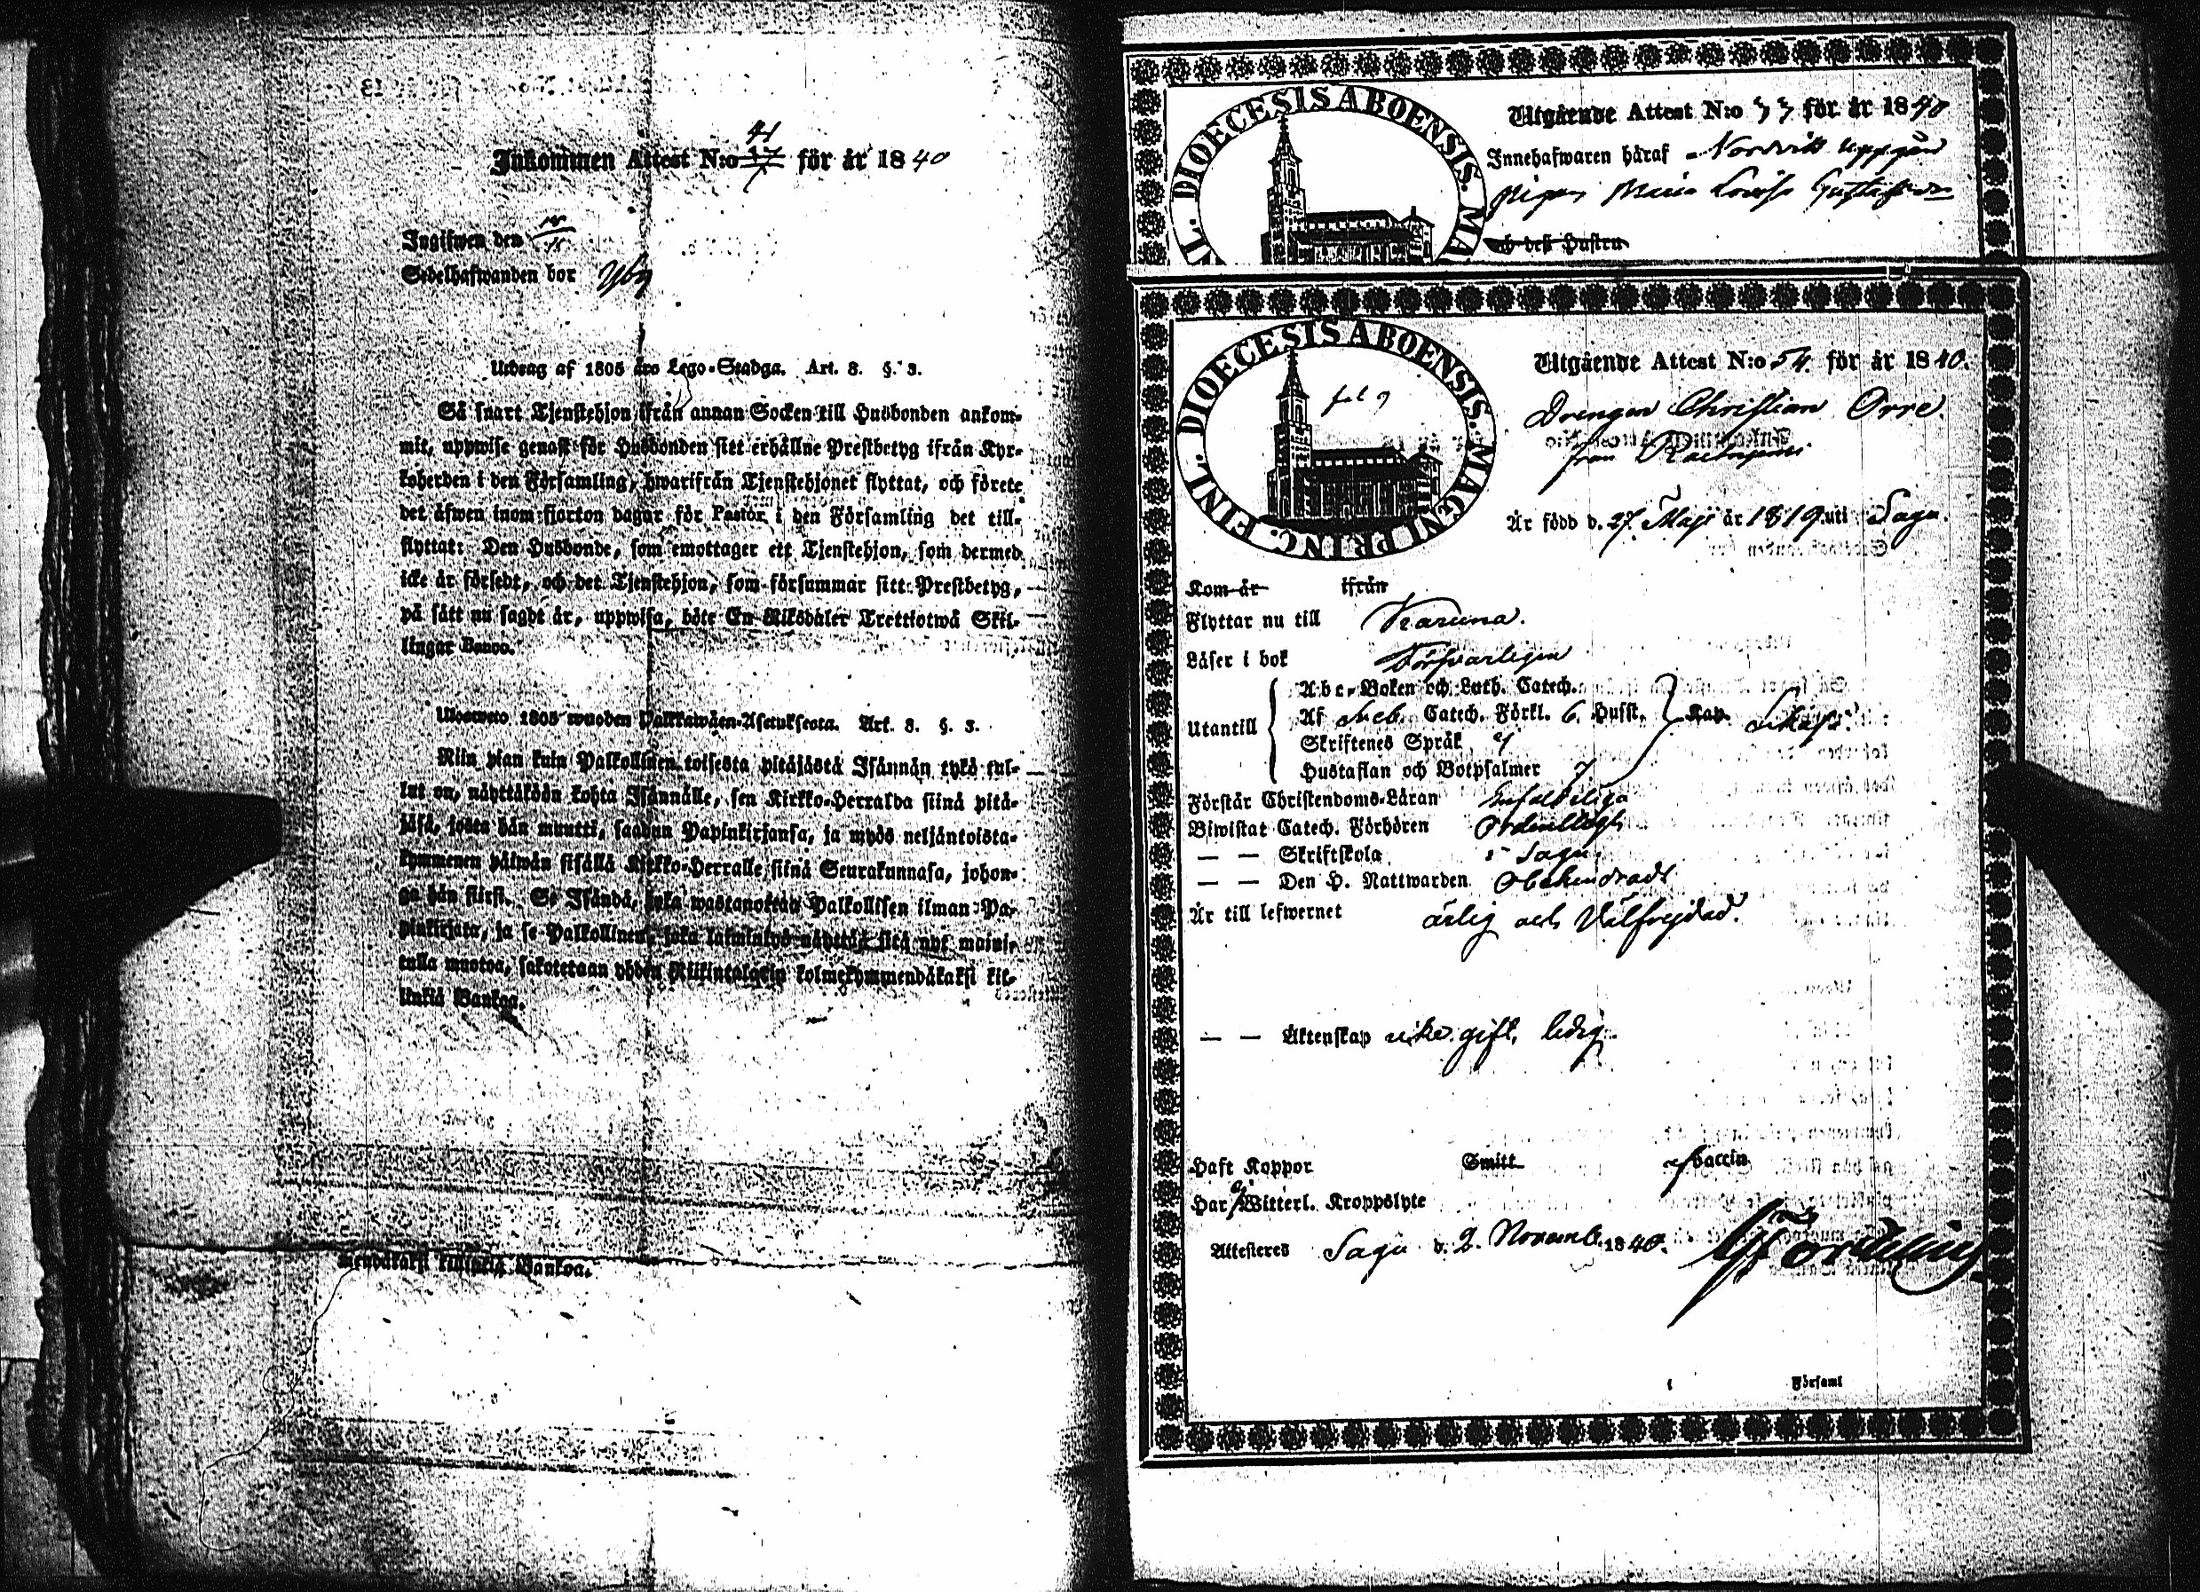 Inkommen Attest N:o 41 för år 1840
Ingifwen den
Sedelhafwanden bor Yby
Utdrag af 1805 års Lego-Stadga. Art. 8. §. 3.
Så snart Tjenstehjon ifrån annan Socken till Husbonden ankom-
mit, uppwise genast för Husbonden sitt erhållne Prestbetyg ifrån Kyr-
koherden i den Församling, hwarifrån Tjenstehjonet flyttat, och förete
det äfwen inom fjorton dagar för Pastor i den Församling det till-
flyttat: Den Husbonde, som emottager ett Tjenstehjon, som dermed
icke är försedt, och det Tjenstehjon, som försummar sitt Prestbetyg,
på sätt nu sagdt är, uppwisa, böte En Riksdaler Trettiotwå Skil-
lingar Banco.
Ulosweto 1805 wuoden Palkkawäen-Asetuksesta. Art. 8. §. 3.
Niin pian kuin Palkollinen toisesta pitäjästä Isännän tykö tul-
lut on, näyttäköön kohta Isännälle, sen Kirkko-Herralda siinä pitä-
jäsä, josta hän muutti, saadun Papinkirjansa, ja myös neljäntoista-
kymmenen päiwän sisällä Kirkko-Herralle siinä Seurakunnasa, johon-
ga hän siirsi. Se Isändä, joka wastanottaa Palkollisen ilman Pa-
pinkirjata, ja se Palkollinen, joka laiminlyö näyttää sitä nyt maini-
tulla muotoa, sakotetaan yhden Riikintalarin kolmekymmendäkaksi kil-
lingiä Bankoa.
mendäkaksi killingiä Bankoa.
DIOECESIS ABOENSIS. MA
Utgående Attest N:o 33 för år 1840
Innehafwaren häraf
Pigan Maria Lovisa Gustafsdr
och dess Hustru
FINL. DIOECESIS ABOENSIS. MAGNI PRINC.
Utgående Attest N:o 54. för år 1840.
Drengen Christian Orre
från
Är född d. 27. Maji år 1819. uti Sagu.
Kom år ifrån
Flyttar nu till Karuna.
Läser i bok Försvarligen
Utantill
Abc-Boken och Luth. Catech.
Af Sveb. Catech. Förkl. 6. Hufst. Kap.
Skriftenes Språk
Hustaflan och Botpsalmer
Förstår Christendoms-Läran Enfaldeliga
Biwistat Catech. Förhören Ordentligt
— — Skriftskola i Sagu.
— — Den H. Nattwarden Obehindradt
Är till lefwernet ärlig och Välfrejdad.
— — Äktenskap icke gift, ledig.
Haft Koppor Smitt vaccin
Har ej Witterl. Kroppslyte
Attesteres Sagu d. 2. Novemb. 1840.
i Församl